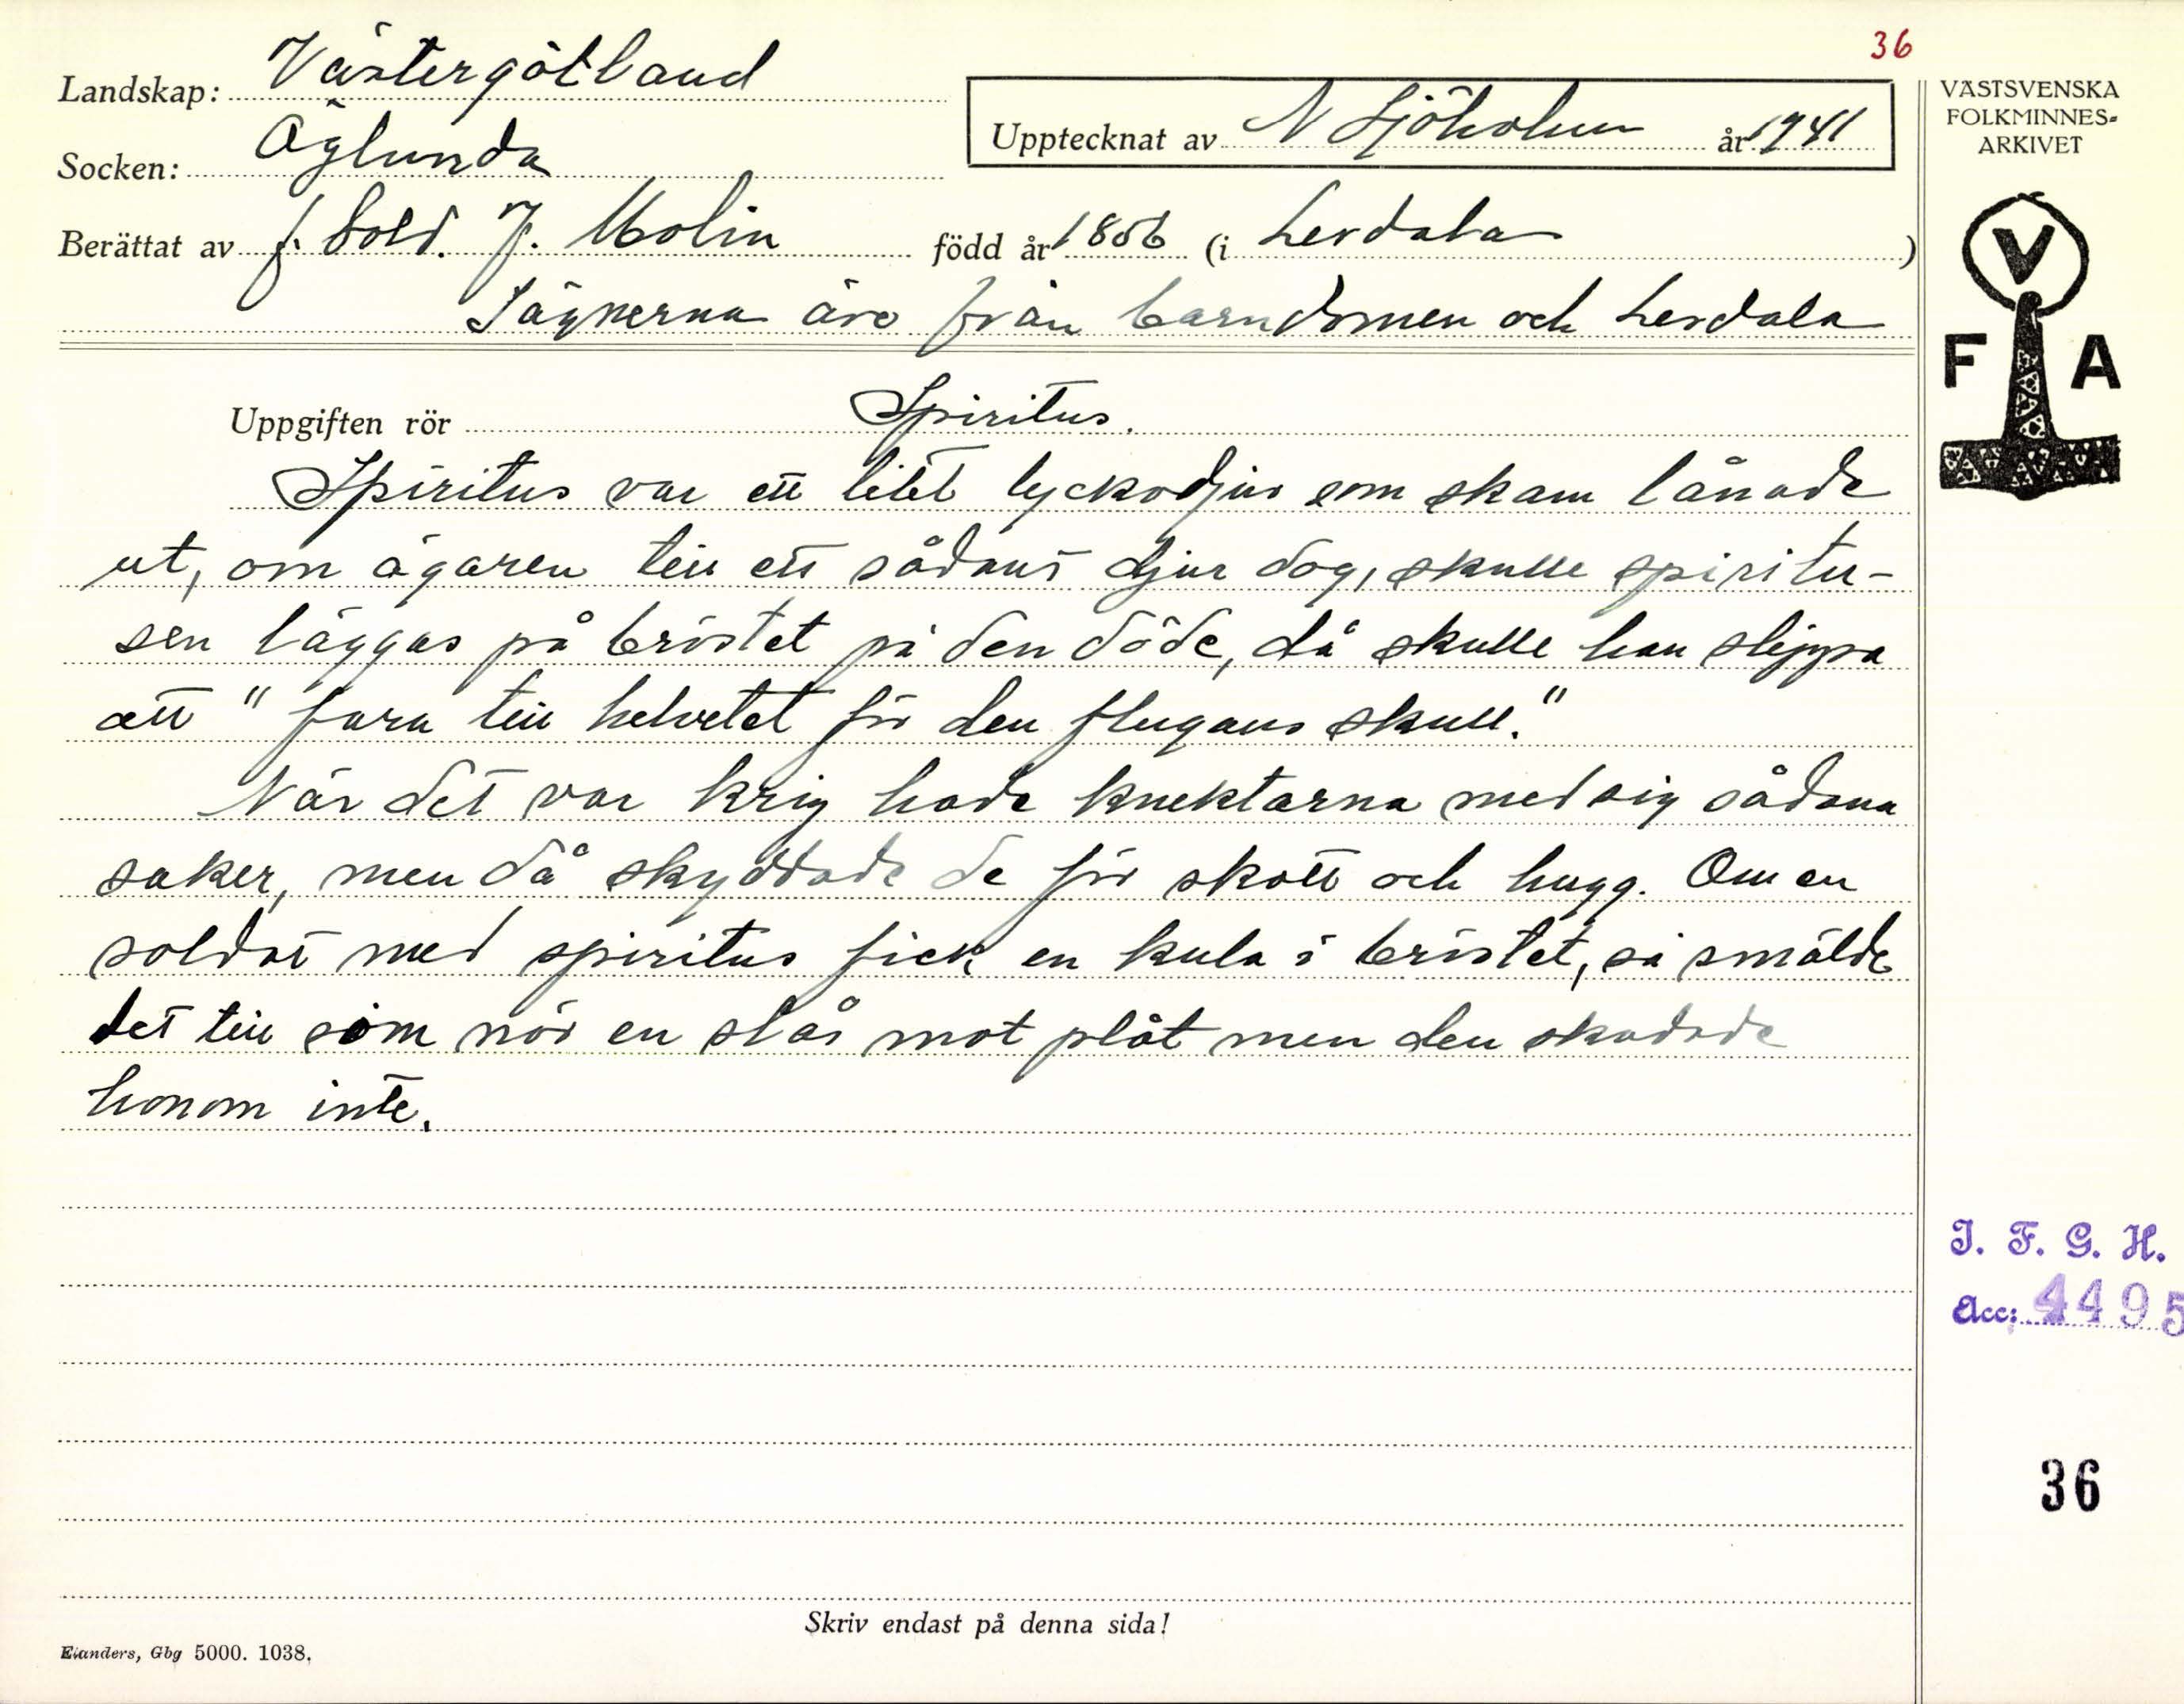 36
Landskap: Västergötland
Socken: Öglunda
Upptecknat av N Sjöholm år 1941
Berättat av f. Sold. J. Molin född år 1856 (i Lerdala)
Sägnerna äro från barndomen och Lerdala
Uppgiften rör Spiritus.
Spiritus var ett litet lyckodjur som skam lånade
ut, om ägaren till ett sådant djur dog, skulle spiritu-
sen läggas på bröstet på den döde, då skulle han slippa
att "fara till helvetet för den flugans skull."
När det var krig hade knektarna med sig sådana
saker, men då skyddade de för skott och hugg. Om en
soldat med spiritus fick en kula i bröstet, så smälde
det till som när en slår mot plåt men den skadade
honom inte.
Skriv endast på denna sida!
Elanders, Gbg 5000. 1038.
VÄSTSVENSKA
FOLKMINNES-
ARKIVET
V
F A
I. F. G. H.
Acc: 4495
36